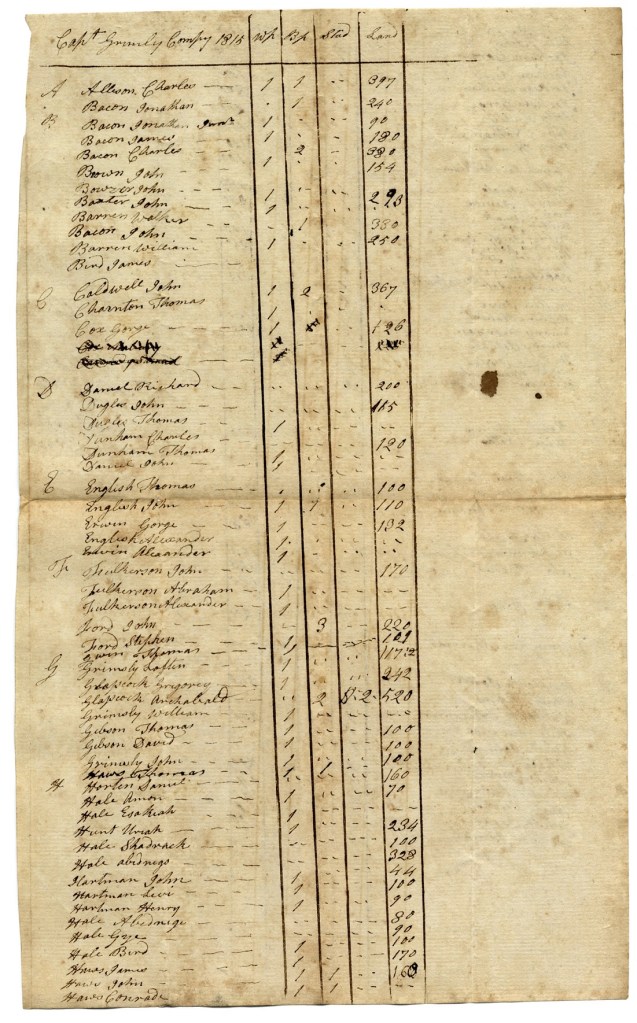 Capt Grimsly Compy 1815 Wp Bp Stud Land
A Allison Charles 1 1 397
Bacon Jonathan 1 240
B Bacon Jonathan Junr 1 90
Bacon James 1 180
Bacon Charles 2 380
Brown John 1 154
Bowzer John
Baxter John 1 223
Barren Walker 1
Bacon John 1 380
Barren William 1 250
Bird James
C Caldwell John 1 2 367
Charnton Thomas 1
Cox Gorge 1 126
D Daniel Richard 200
Duglas John 115
Duglas Thomas 1
Dunham Charles
Dunham Thomas 1 120
Daniel John 1
E English Thomas 100
English John 1 1 110
Erwin Gorge 1 132
English Alexander 1
Erwin Alexander 1
F Foulkerson John 170
Fulkerson Abraham 1
Fulkerson Alexander 1
Ford John 3 220
Ford Stephen 1 109
Thomas 1 117
G Grimsly Loftin 1
Glascock Grigorey 1 242
Glascock Archabald 2 2 520
Grimsly William 1
Gibson Thomas 1 100
Gibson David 1 100
Grimsly John 1 1 100
Haws Thomas 1 160
H Horten Daniel 1 70
Hale Amon 1
Hale Esakiah 1
Hunt Uriah 1 234
Hale Shadrack 100
Hale abidnego 328
Hartman John 1 44
Hartman Levi 1 100
Hartman Henry 1 90
Hale Abednige 80
Hale 90
Hale Bird 1 100
Haws James 1 170
Haws John 1 1 160
Haws Conrade 1 1